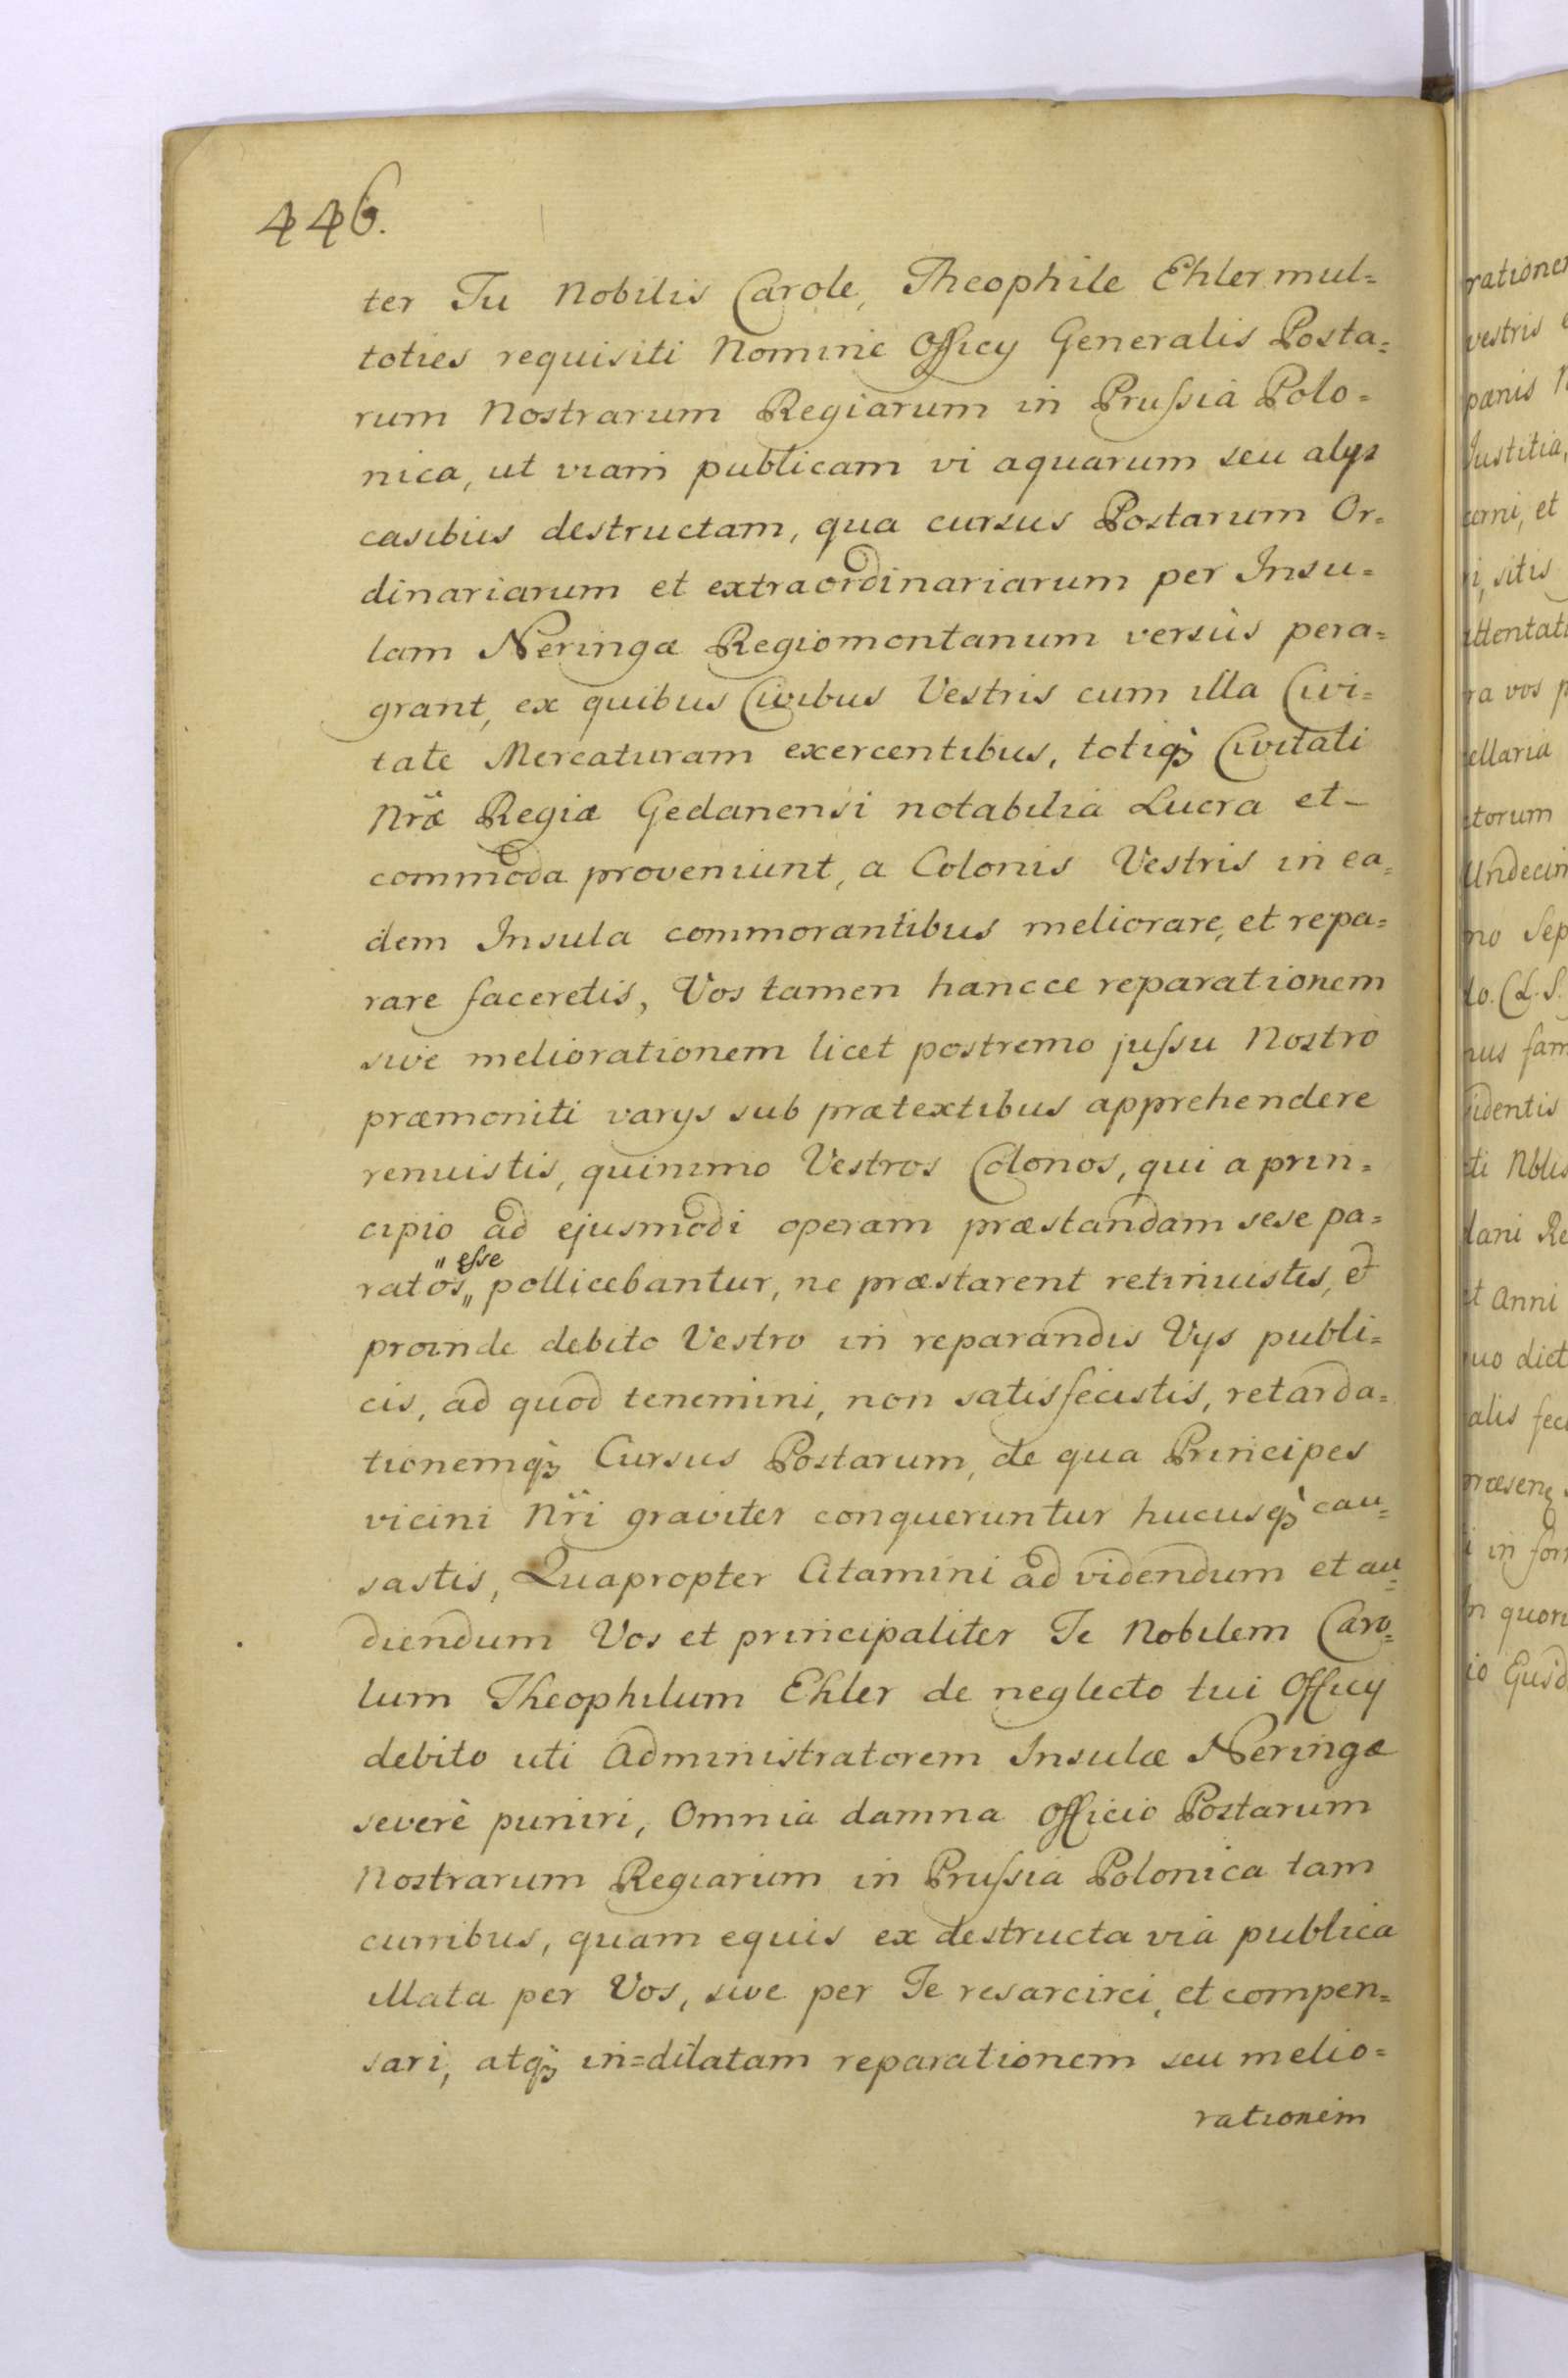 446.
ter Tu Nobilis Carole, Theophile Ehler mul=
toties requisiti Nomine Officÿ Generalis Posta=
rum Nostrarum Regiarum in Prußia Polo=
nica, ut viam publicam vi aquarum seu alÿs
casibus destructam, qua cursus Postarum Or=
dinariarum et extraordinariarum per Insu=
lam Neringæ Regiomontanum versùs pera=
grant, ex quibus Civibus Vestris cum illa Civi=
tate Mercaturam exercentibus, totiq̀3 Civitati
Nræ Regiæ Gedanensi notabilia Lucra et -
commoda proveniunt, a Colonis Vestris in ea=
dem Insula commorantibus meliorare, et repa=
rare faceretis, Vos tamen hancce reparationem
sive meliorationem licet postremo jußu Nostro
præmoniti varÿs sub prætextibus apprehendere
renuistis, quinimo Vestros Colonos, qui a prin=
cipio ad ejusmodi operam præstandam sese pa=
" eße
ratos„ pollicebantur, ne præstarent retinuistis, et
proinde debito Vestro in reparandis Vÿs publi=
cis, ad quod tenemini, non satisfecistis, retarda=
tionemq̀3 Cursus Postarum, de qua Principes
vicini Nri graviter conqueruntur hucusq̀3 cau=
sastis, Quapropter Citamini ad videndum et au=
diendum Vos et principaliter Te Nobilem Caro=
lum Theophilum Ehler de neglecto tui Officÿ
debito uti Administratorem Insulæ Neringæ
severè puniri, Omnia damna Officio Postarum
Nostrarum Regiarum in Prußia Polonica tam
curribus, quam equis ex destructa via publica
illata per Vos, sive per Te resarcirci, et compen=
sari, atq̀3 in=dilatam reparationem seu melio=
rationem
rationem
vestris
panis
Justitia,
cerni, et
i, sitis
attentat
ra vos p
cellaria
torum
Undecim
no Sep
do. (L.S.
nus fam
identis
ti Nblis
dani Re
et Anni
quo dict
alis fec
præsen
i in for
n quor
io Ejusd